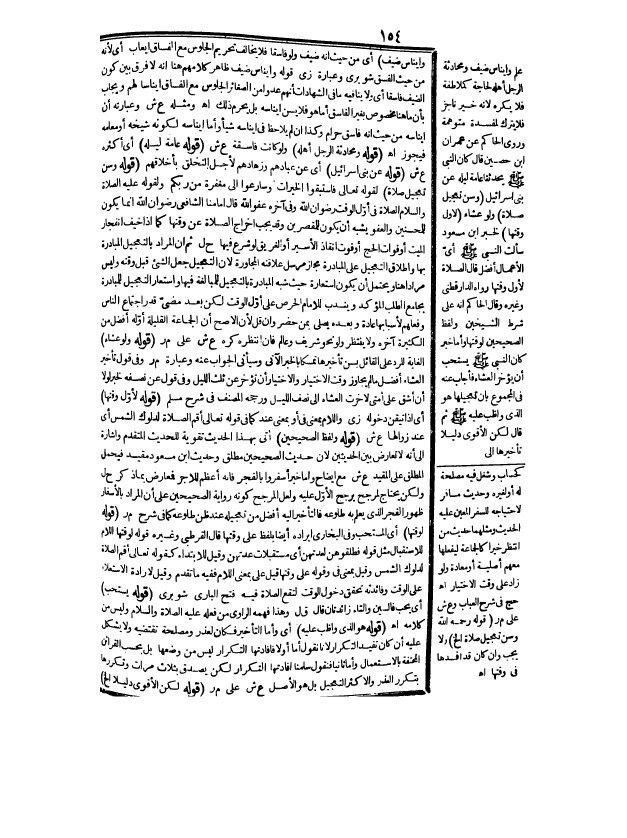 ١٥٤
وايناس ضيف) أى من حيث انه ضيف ولو فاسقا فلا يخالف تحريم الجلوس مع الفساق ايعاب أى لأنه
من حيث الفسق شوبرى وعبارة زى قوله وايناس ضيف ظاهر كلامهم هنا انه لا فرق بين كون
الضيف فاسقا أى ولا ينافيه ما فى الشهادات أنهم عدوا من الصغائر الجلوس مع الفساق ايناسا لهم ويجاب
بأن ما هنا مخصوص بغير الفاسق أما هو فلا يسن ايناسه بل يحرم ذلك اه ومثله ع ش وعبارته أن
ايناسه من حيث انه فاسق حرام وكذا ان لم يلاحظ فى ايناسه شيأ وأما ايناسه لكونه شيخه أو معلمه
فيجوز اه (قوله ومحادثة الرجل أهله) ولو كانت فاسقة ع ش (قوله عامة ليله) أى أكثره
(قوله عن بنى اسرائيل) أى عن عبادهم وزهادهم لأجل التخلق بأخلاقهم (قوله وسن
تعجيل صلاة) لقوله تعالى فاستبقوا الخيرات وسارعوا الى مغفرة من ربكم ولقوله عليه الصلاة
والسلام الصلاة فى أول الوقت رضوان الله وفى آخره عفو الله قال امامنا الشافعى رضوان الله انما يكون
للمحسنين والعفو يشبه أن يكون للمقصرين وقد يجب اخراج الصلاة عن وقتها كما اذا خيف انفجار
الميت أو فوات الحج أو فوت انقاذ الأسير أو الغريق لو شرع فيها ح ل ثم ان المراد بالتعجيل المبادرة
بها واطلاق التعجيل على المبادرة مجاز مرسل علاقته المجاورة لان التعجيل جعل الشئ قبل وقته وليس
مرادا هنا ويحتمل أن يكون استعارة حيث شبه المبادرة بالتعجيل للمبالغة فيها واستعار التعجيل للمبادرة
بجامع الطلب المؤكد ويندب للامام الحرص على أول الوقت لكن بعد مضى قدر اجتماع الناس
وفعلهم لأسبابها عادة وبعده يصلى بمن حضر وان قل لأن الاصح أن الجماعة القليلة أوله أفضل من
الكثيرة آخره ولا ينتظر ولو نحو شريف وعالم فان انتظر كره ع ش على م ر (قوله ولو عشاء)
الغاية للرد على القائل بسن تأخيرها تمسكا بالخبر الآتى وسيأتى الجواب عنه وعبارة م ر وفى قول تأخير
العشاء أفضل ما لم يجاوز وقت الاختيار والاختيار أن تؤخر عن ثلث الليل وفى قول عن نصفه لخبر لولا
أن أشق على أمتى لاخرت العشاء الى نصف الليل ورجحه المصنف فى شرح مسلم (قوله لأول وقتها)
أى اذا تيقن دخوله زى واللام بمعنى فى أو بمعنى عند كما فى قوله تعالى أقم الصلاة لدلوك الشمس أى
عند زوالها ع ش (قوله ولفظ الصحيحين) أتى بهذا الحديث تقوية للحديث المتقدم واشارة
الى أنه لا تعارض بين الحديثين لان حديث الصحيحين مطلق وحديث ابن مسعود مقيد فيحمل
المطلق على المقيد ع ش مع ايضاح واما خبر أسفروا بالفجر فانه أعظم للأجر فمعارض بما ذكر ح ل
ولكن يحتاج لمرجح يرجح الأول عليه ولعل المرجح كونه رواية الصحيحين على أن المراد بالأسفار
ظهور الفجر الذى يعلم به طلوعه فالتأخير اليه أفضل من تعجيله عند ظن طلوعه كما فى شرح م ر (قوله
لوقتها) أى المستحب وفى البخارى ايراده أيضا بلفظ على وقتها قال القرطبى وغيره قوله لوقتها اللام
للاستقبال مثل قوله فطلقوهن لعدتهن أى مستقبلات عدتهن وقيل للابتداء كقوله تعالى أقم الصلاة
لدلوك الشمس وقيل بمعنى فى وقوله على وقتها قيل على بمعنى اللام ففيه ما تقدم وقيل لارادة الاستعلاء
على الوقت وفائدته تحقق دخول الوقت لتقع الصلاة فيه فتح البارى شوبرى (قوله يستحب)
أى يحب فالسين والتاء زائدتان قال ق ل وهذا فهمه الراوى من فعله عليه الصلاة والسلام وليس من
كلامه اه (قوله هو الذى واظب عليه) أى وأما التأخير فكان لعذر ومصلحة تقتضيه ولا يشكل
عليه أن كان تفيد التكرار لانا نقول أما أولا فافادتها التكرار ليس من وضعها بل بحسب القرائن
المحتفة بالاستعمال وأما ثانيا فنقول سلمنا افادتها التكرار لكن يصدق بثلاث مرات وتكررها
بتكرر العذر والاكثر التعجيل بل هو الأصل ع ش على م ر (قوله لكن الأقوى دليلا الخ)
علم وايناس ضيف ومحادثة
الرجل أهله لحاجة كملاطفة
فلا يكره لانه خير ناجز
فلا يترك لمفسدة متوهمة
وروى الحاكم عن عمران
ابن حصين قال كان النبى
ﷺ يحدثنا عامة ليله عن
بنى اسرائيل (وسن تعجيل
صلاة) ولو عشاء (لأول
وقتها) لخبر ابن مسعود
سألت النبى ﷺ أى
الأعمال أفضل قال الصلاة
لأول وقتها رواه الدارقطنى
وغيره وقال الحاكم انه على
شرط الشيخين ولفظ
الصحيحين لوقتها وأما خبر
كان النبى ﷺ يستحب
أن يؤخر العشاء فأجاب عنه
فى المجموع بأن تعجيلها هو
الذى واظب عليه ﷺ ثم
قال لكن الأقوى دليلا
تأخيرها الى
كحساب وشغل فيه مصلحة
له أو لغيره وحديث مسافر
لاحتياجه للسفر المعين عليه
الحديث ومثلهما حديث من
انتظر خيرا كالجماعة ليفعلها
معهم أصلية أو معادة ولو
زاد على وقت الاختيار اه
حج فى شرح العباب وع ش
على م ر (قوله رحمه الله
وسن تعجيل صلاة الخ) ولا
يجب وان كان قد أفسدها
فى وقتها اه